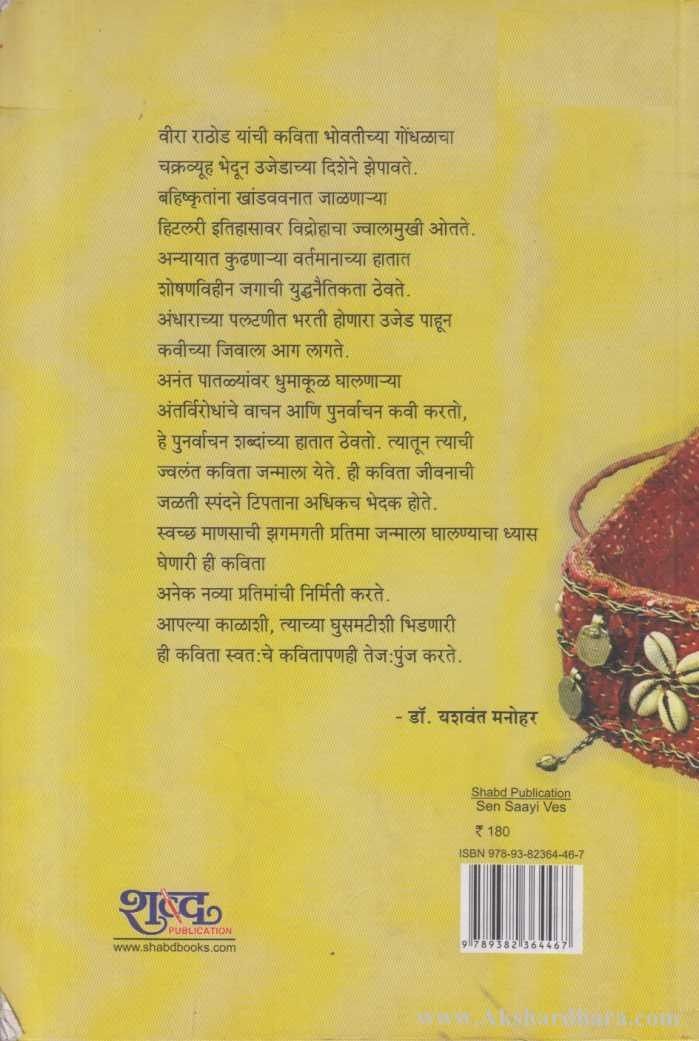 वीरा राठोड यांची कविता भोवतीच्या गोंधळाचा
चक्रव्यूह भेदून उजेडाच्या दिशेने झेपावते.
बहिष्कृतांना खांडववनात जाळणाऱ्या
हिटलरी इतिहासावर विद्रोहाचा ज्वालामुखी ओतते.
अन्यायात कुढणाऱ्या वर्तमानाच्या हातात
शोषणविहीन जगाची युद्धनैतिकता ठेवते.
अंधाराच्या पलटणीत भरती होणारा उजेड पाहून
कवीच्या जिवाला आग लागते.
अनंत पातळ्यांवर धुमाकूळ घालणाऱ्या
अंतर्विरोधांचे वाचन आणि पुनर्वाचन कवी करतो,
हे पुनर्वाचन शब्दांच्या हातात ठेवतो. त्यातून त्याची
ज्वलंत कविता जन्माला येते. ही कविता जीवनाची
जळती स्पंदने टिपताना अधिकच भेदक होते.
स्वच्छ माणसाची झगमगती प्रतिमा जन्माला घालण्याचा ध्यास
घेणारी ही कविता
अनेक नव्या प्रतिमांची निर्मिती करते.
आपल्या काळाशी, त्याच्या घुसमटीशी भिडणारी
ही कविता स्वत:चे कवितापणही तेज:पुंज करते.
- डॉ. यशवंत मनोहर
Shabd Publication
Sen Saayi Ves
₹ 180
ISBN 978-93-82364-46-7
9 789382 364467
शब्द
PUBLICATION
www.shabdbooks.com
www.Akshardhara.com